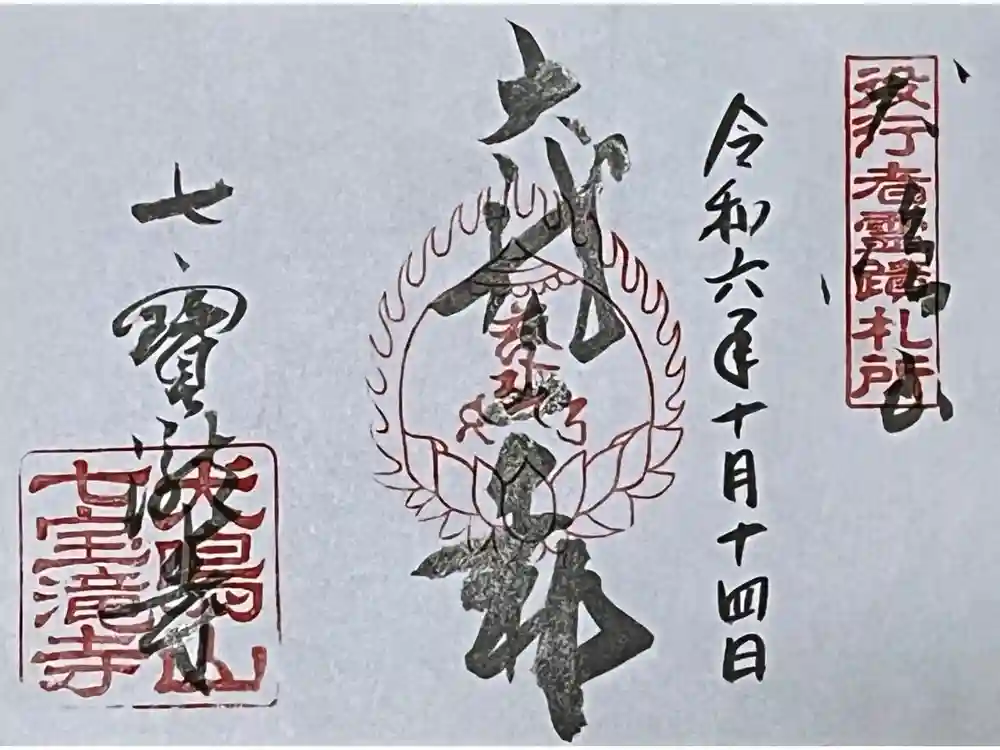 役行者靈蹟札所
犬鳴山
令和六年十月十四日
七寳瀧寺
犬鳴山
七宝滝寺